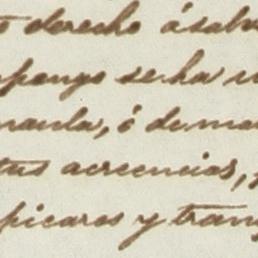 derecho á salv
pongo se ha
maula, ó dema
tas acreencias,
picaros y tran